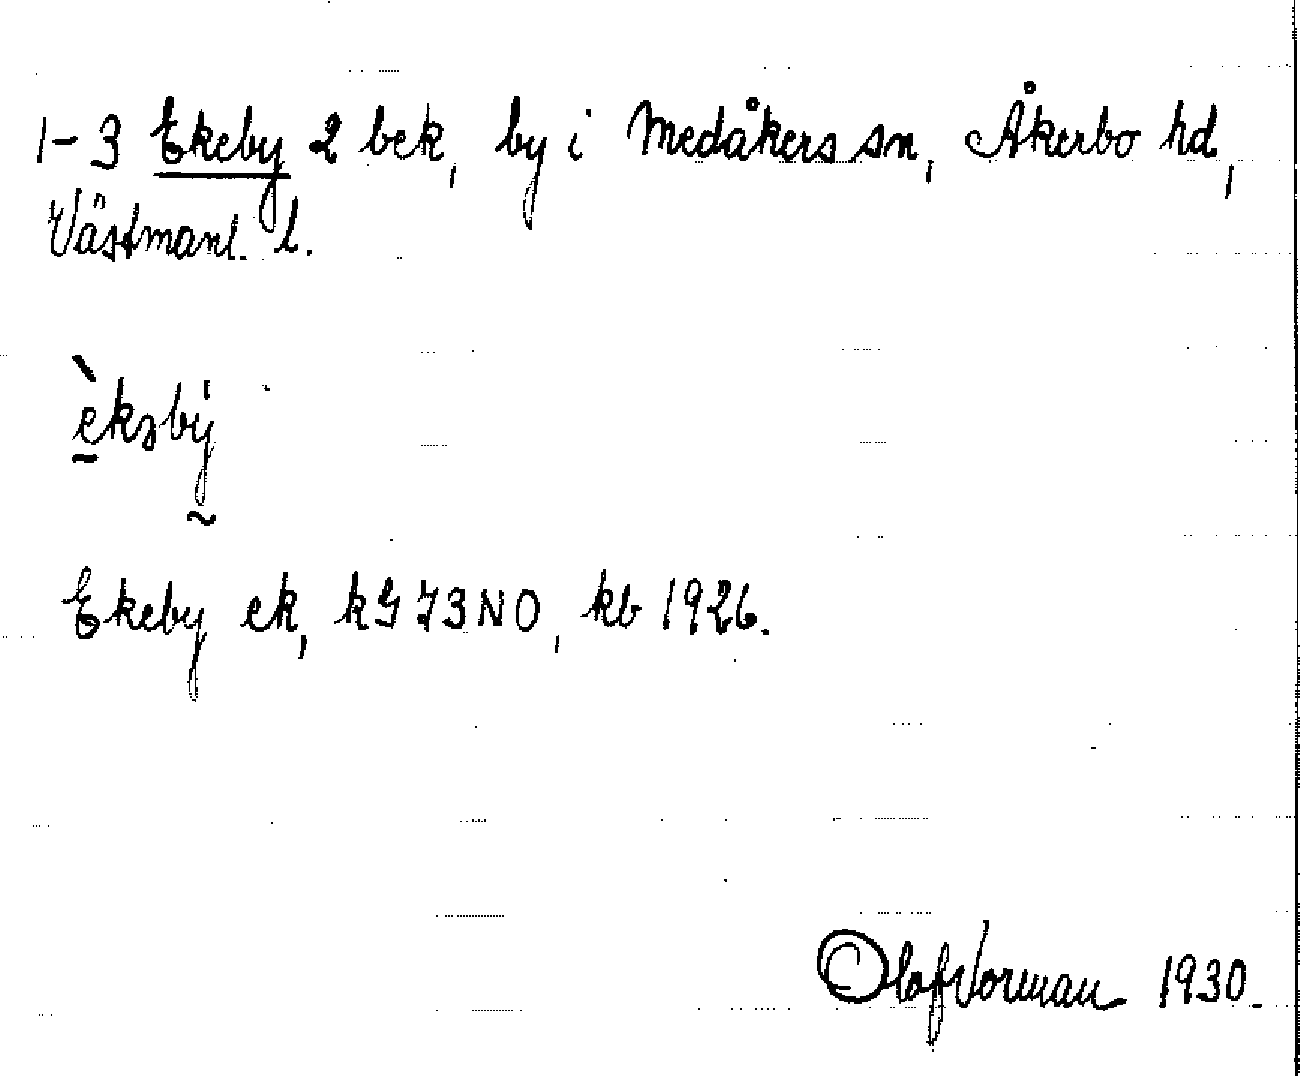 1-3 Ekeby 2 bek, by i Medåkers sn, Åkerbo hd,
Västmanl. l.
Ekeby ek, kG 73 NO, kb 1926.
Olof Norman 1930.